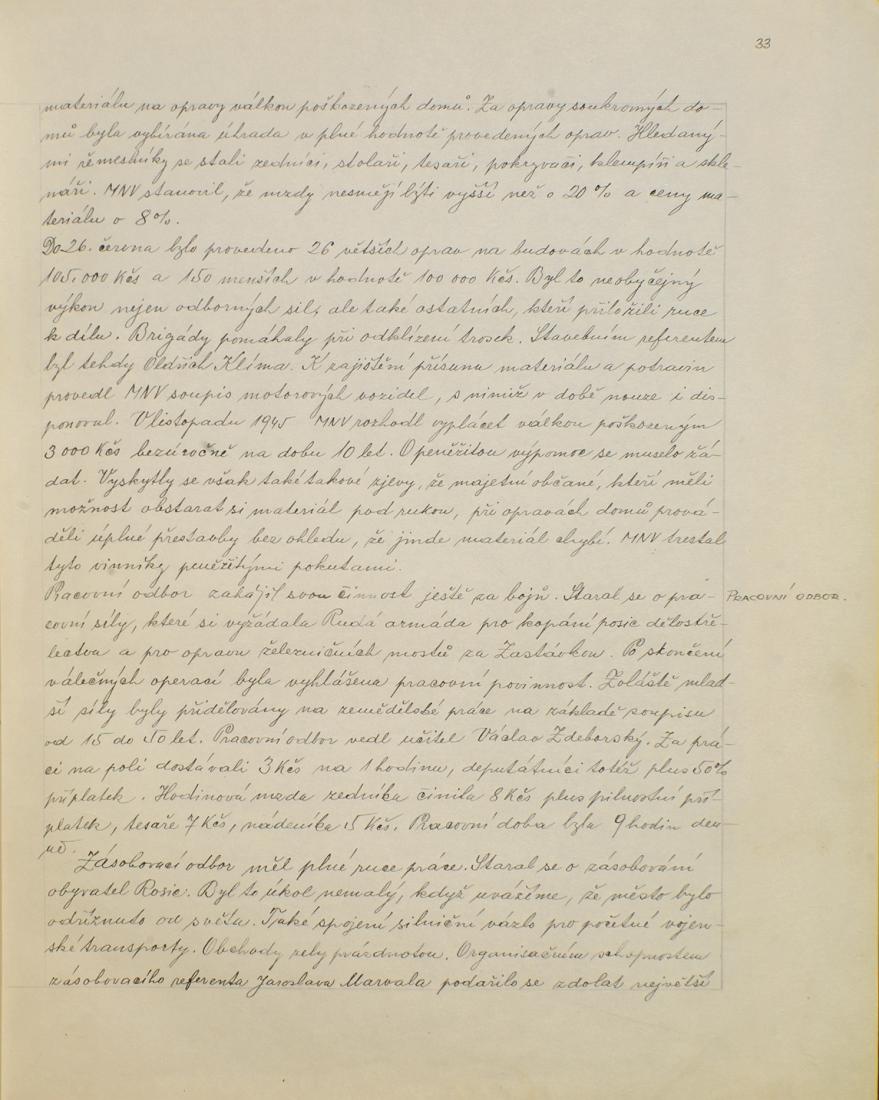 33
materiálu na opravy válkou poškozených domů. Za opravy soukromých do-
mů byla vybírána úhrada v plné hodnotě provedených oprav. Hledaný-
mi řemeslníky se stali zedníci, stolaři, tesaři, pokrývači, klempíři a skle-
náři. MNV stanovil, že mzdy nesmějí býti vyšší než o 20% a ceny ma-
teriálu o 8%.
Do 26. června bylo provedeno 26 větších oprav na budovách v hodnotě
105.000 Kčs a 150 menších v hodnotě 100 000 Kčs. Byl to neobyčejný
výkon nejen odborných sil, ale také ostatních, kteří přiložili ruce
k dílu. Brigády pomáhaly při odklízení trosek. Stavebním referentem
byl tehdy Oldřich Klíma. K zajištění přísunu materiálu a potravin
provedl MNV soupis motorových vozidel, s nimiž v době nouze i dis-
ponoval. V listopadu 1945 MNV rozhodl vyplácet válkou poškozeným
3 000 Kčs bezúročně na dobu 10 let. O peněžitou výpomoc se muselo žá-
dat. Vyskytly se však také takové zjevy, že majetní občané, kteří měli
možnost obstarat si materiál pod rukou, při opravách domů prová-
děli úplné přestavby bez ohledu, že jinde materiál chybí. MNV trestal
tyto vinníky peněžitými pokutami.
Pracovní odbor zahájil svou činnost ještě za bojů. Staral se o pra- PRACOVNÍ ODBOR.
covní síly, které si vyžádala Rudá armáda pro kopání posic dělostře-
lectva a pro opravu železničních mostů za Zastávkou. Po skončení
válečných operací byla vyhlášena pracovní povinnost. Zvláště mlad-
ší síly byly přidělovány na zemědělské práce na základě soupisu
od 15 do 50 let. Pracovní odbor vedl učitel Václav Zdeborský. Za prá-
ci na poli dostávali 3 Kčs na 1 hodinu, deputátníci totéž plus 50%
příplatek. Hodinová mzda zedníka činila 8 Kčs plus pilnostní pří-
platek, tesaře 7 Kčs, nádeníka 5 Kčs. Pracovní doba byla 9 hodin den-
ně.
Zásobovací odbor měl plné ruce práce. Staral se o zásobování
obyvatel Rosic. Byl to úkol nemalý, když uvážíme, že město bylo
odříznuto od světa. Také spojení silniční vázlo pro početné vojen-
ské transporty. Obchody zely prázdnotou. Organisačním schopnostem
zásobovacího referenta Jaroslava Marvala podařilo se zdolat největší